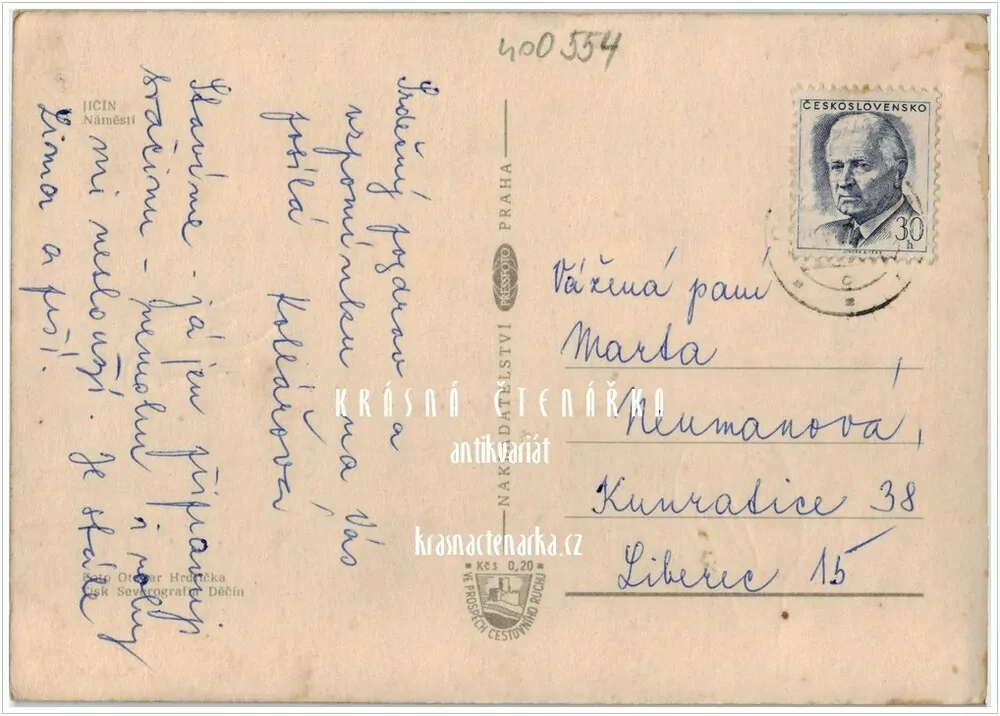 400554
JIČÍN
Náměstí
Srdečný pozdrav a
vzpomínku na Vás
posílá Kolářová
Stavíme - já jen připravuji
svačinu - nemohu i nohy
mi neslouží. Je stále
zima a prší.
Foto Otakar Hrdlička
Tisk Severografia Děčín
NAKLADATELSTVÍ PRESSFOTO PRAHA
Kčs 0,20
VE PROSPĚCH CESTOVNÍHO RUCHU
ČESKOSLOVENSKO
30
h
Vážená paní
Marta
Neumanová,
Kunratice 38
Liberec 15
KRÁSNÁ ČTENÁŘKA
antikvariát
krasnactenarka.cz